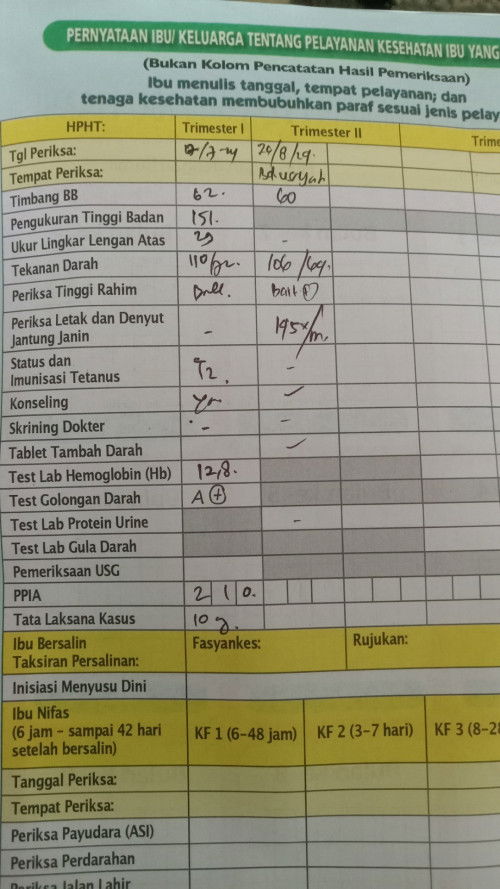 PERNYATAAN IBU/ KELUARGA TENTANG PELAYANAN KESEHATAN IBU YANG
(Bukan Kolom Pencatatan Hasil Pemeriksaan)
Ibu menulis tanggal, tempat pelayanan; dan
tenaga kesehatan membubuhkan paraf sesuai jenis pelay
HPHT: Trimester I Trimester II Trime
Tgl Periksa:
Tempat Periksa:
Timbang BB 62. 60
Pengukuran Tinggi Badan 151.
Ukur Lingkar Lengan Atas -
Tekanan Darah
Periksa Tinggi Rahim
Periksa Letak dan Denyut
Jantung Janin - 145x/m.
Status dan
Imunisasi Tetanus T2. -
Konseling
Skrining Dokter - -
Tablet Tambah Darah
Test Lab Hemoglobin (Hb) 12,8.
Test Golongan Darah A (+)
Test Lab Protein Urine -
Test Lab Gula Darah
Pemeriksaan USG
PPIA 2 1 0.
Tata Laksana Kasus
Ibu Bersalin Fasyankes: Rujukan:
Taksiran Persalinan:
Inisiasi Menyusu Dini
Ibu Nifas
(6 jam - sampai 42 hari
setelah bersalin) KF 1 (6-48 jam) KF 2 (3-7 hari) KF 3 (8-28
Tanggal Periksa:
Tempat Periksa:
Periksa Payudara (ASI)
Periksa Perdarahan
Periksa Jalan Lahir